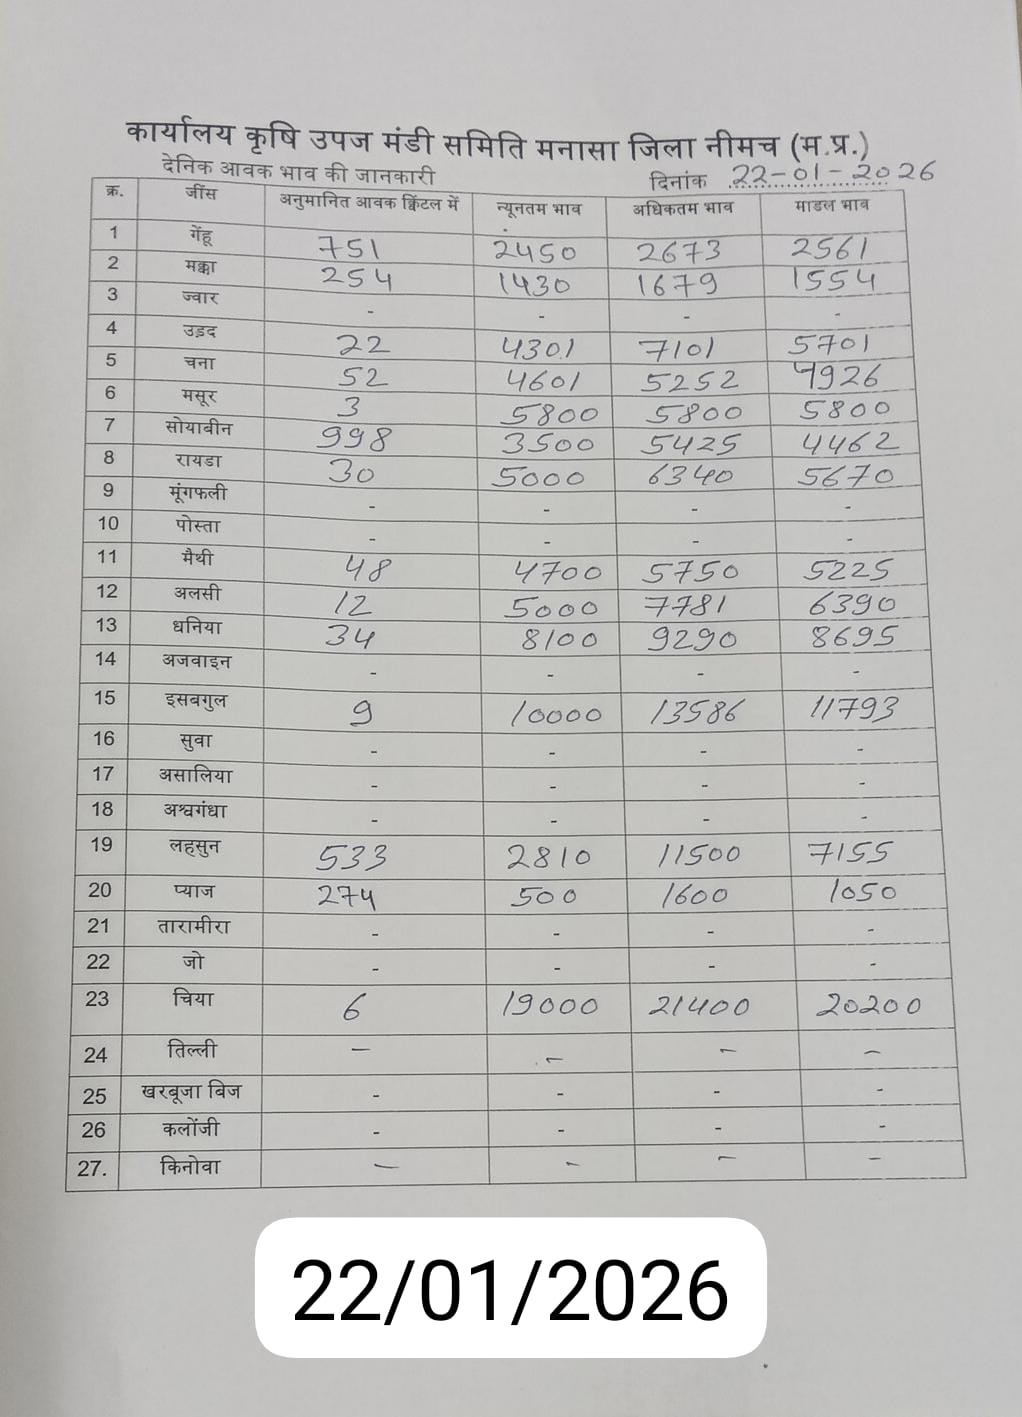 कार्यालय कृषि उपज मंडी समिति मनासा जिला नीमच (म.प्र.)
देनिक आवक भाव की जानकारी दिनांक 22-01-2026
क्र. जींस अनुमानित आवक क्विंटल में न्यूनतम भाव अधिकतम भाव माडल भाव
1 गेंहू 751 2450 2673 2561
2 मक्का 254 1430 1679 1554
3 ज्वार - - - -
4 उड़द 22 4301 7101 5701
5 चना 52 4601 5252 4926
6 मसूर 3 5800 5800 5800
7 सोयाबीन 998 3500 5425 4462
8 रायडा 30 5000 6340 5670
9 मूंगफली - - - -
10 पोस्ता - - - -
11 मैथी 48 4700 5750 5225
12 अलसी 12 5000 7781 6390
13 धनिया 34 8100 9290 8695
14 अजवाइन - - - -
15 इसबगुल 9 10000 13586 11793
16 सुवा - - - -
17 असालिया - - - -
18 अश्वगंधा - - - -
19 लहसुन 533 2810 11500 7155
20 प्याज 274 500 1600 1050
21 तारामीरा - - - -
22 जो - - - -
23 चिया 6 19000 21400 20200
24 तिल्ली - - - -
25 खरबूजा बिज - - - -
26 कलोंजी - - - -
27. किनोवा - - - -
22/01/2026